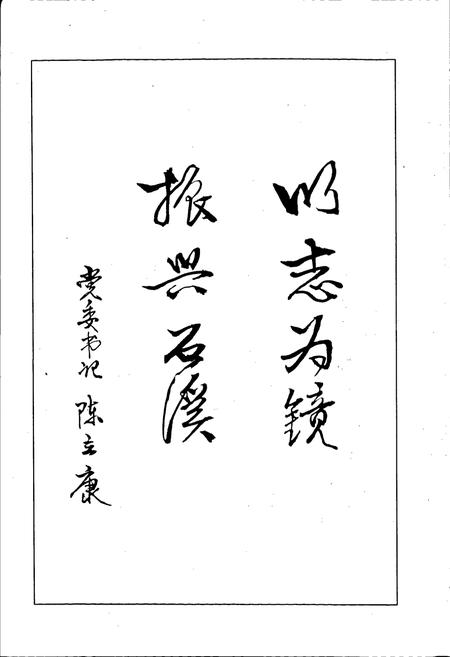 以志为镜
振兴石溪
党委书记 陈立康